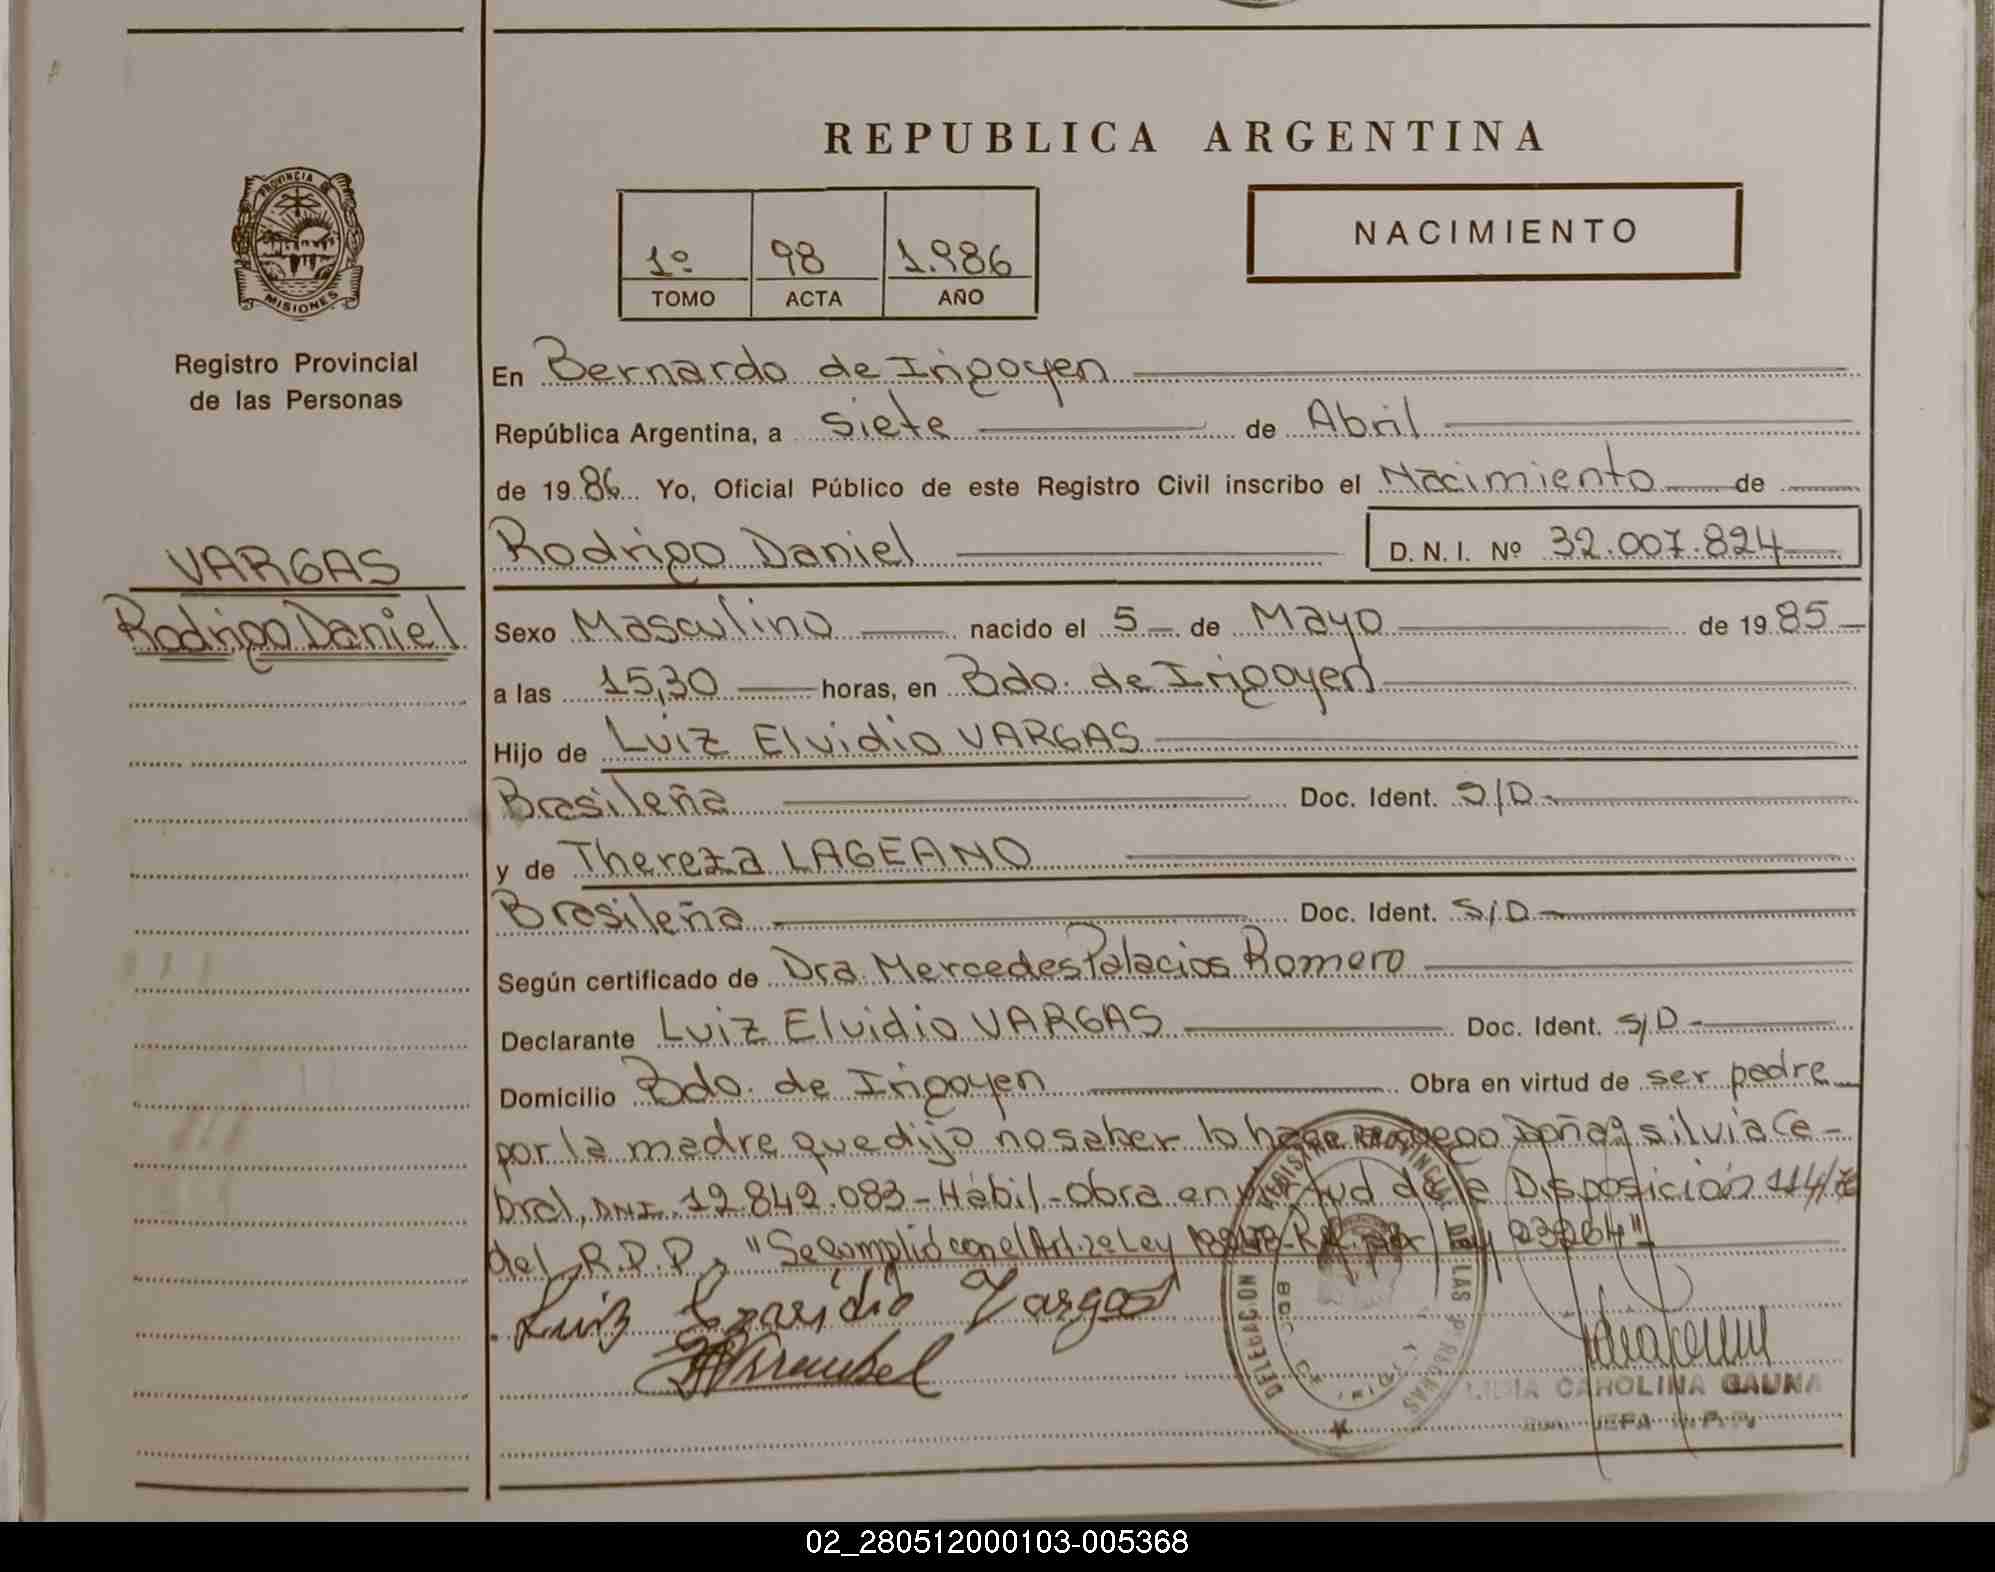 REPUBLICA ARGENTINA
PROVINCIA DE
MISIONES
Registro Provincial
de las Personas
1º 98 1.986
TOMO ACTA AÑO
NACIMIENTO
En Bernardo de Irigoyen
República Argentina, a siete de Abril
de 19 86 Yo, Oficial Público de este Registro Civil inscribo el Nacimiento de
VARGAS
Rodrigo Daniel
Rodrigo Daniel D. N. I. Nº 32.007.824
Sexo Masculino nacido el 5 de Mayo de 19 85
a las 15,30 horas, en Bdo. de Irigoyen
Hijo de Luiz Elvidio VARGAS
Brasileña Doc. Ident. S/D
y de Thereza LAGEANO
Brasileña Doc. Ident. S/D
Según certificado de Dra. Mercedes Palacios Romero
Declarante Luiz Elvidio VARGAS Doc. Ident. S/D
Domicilio Bdo. de Irigoyen Obra en virtud de ser padre
por la madre que dijo no saber lo hace a ruego Doña silvia Ce-
bral, DNI. 12.842.083-Hábil-Obra en virtud de la Disposición 114/
del R.P.P. "Se cumplió con el Art. 2º Ley 23264"
Luiz Vargas
REGISTRO PROVINCIAL DE LAS PERSONAS
DELEGACION
BDO. DE IRIGOYEN
LIDIA CAROLINA GAUNA
JEFA R.P.P.
02_280512000103-005368